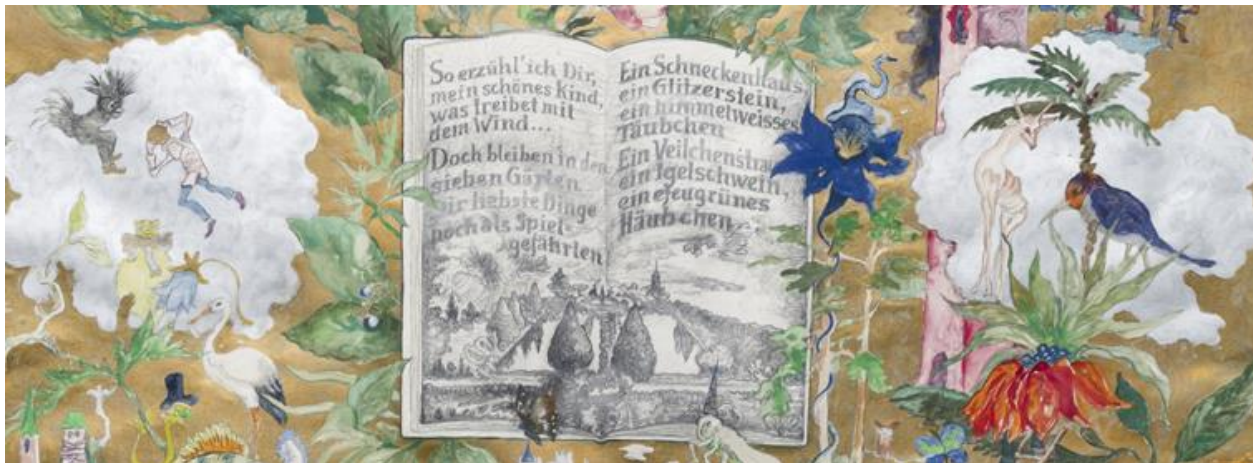 So erzähl' ich Dir,
mein schönes Kind,
was treibet mit
dem Wind...
Doch bleiben in den
sieben Gärten
dir liebste Dinge
noch als Spiel-
gefährten
Ein Schneckenhaus,
ein Glitzerstein,
ein himmelweisses
Täubchen
Ein Veilchenstrau
ein Igelschwein,
ein efeugrünes
Häubchen